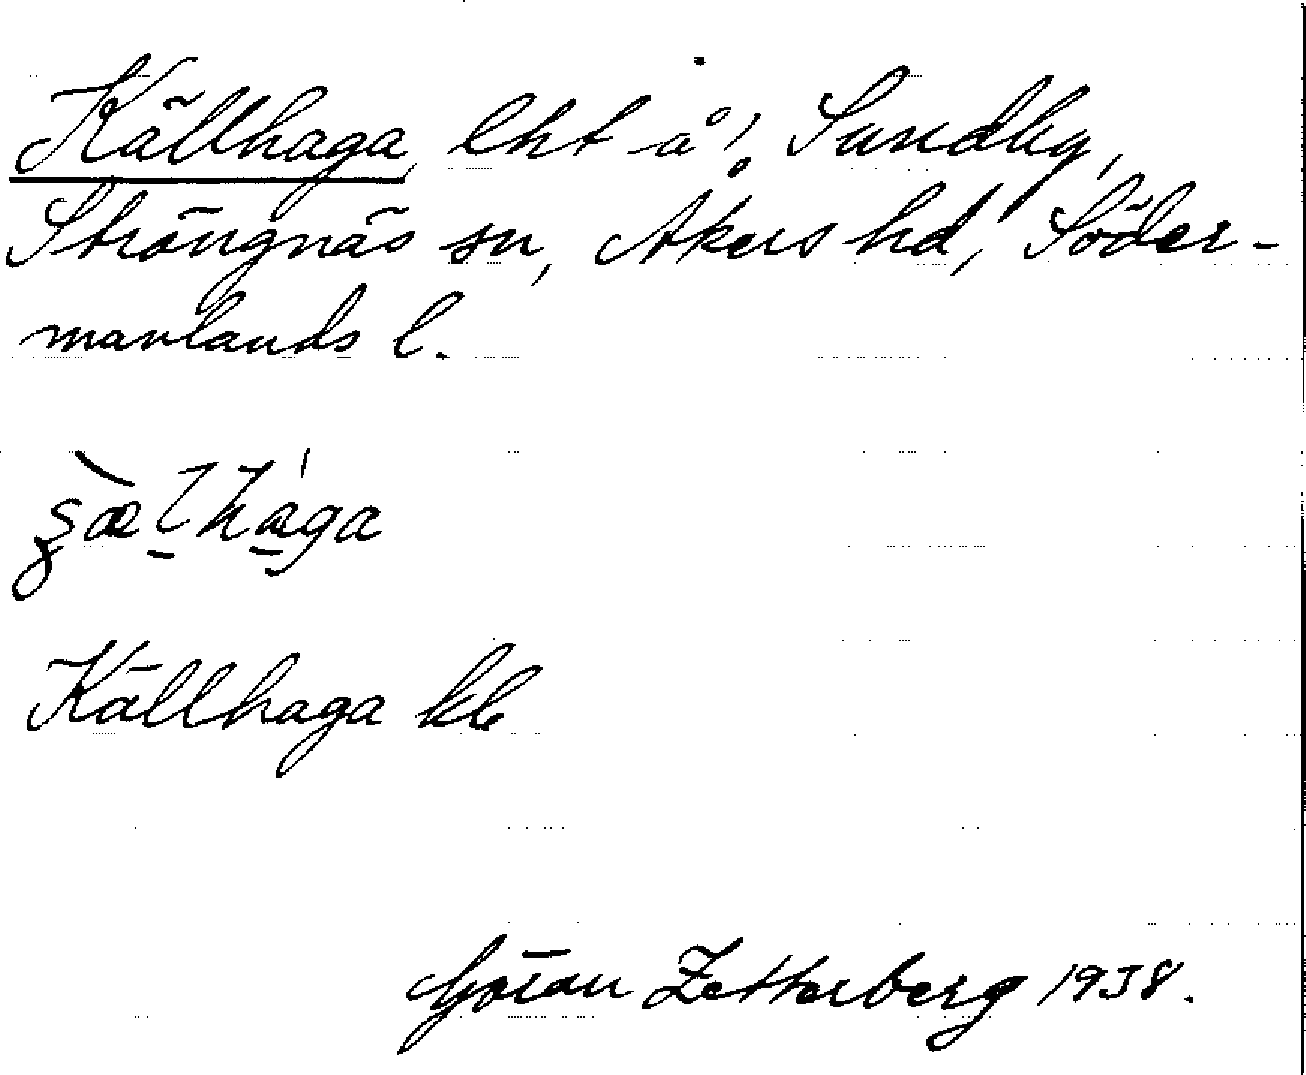 Källhaga, lht å Sundby,
Strängnäs sn, Åkers hd, Söder-
manlands l.
Källhaga kb
Göran Zetterberg 1938.